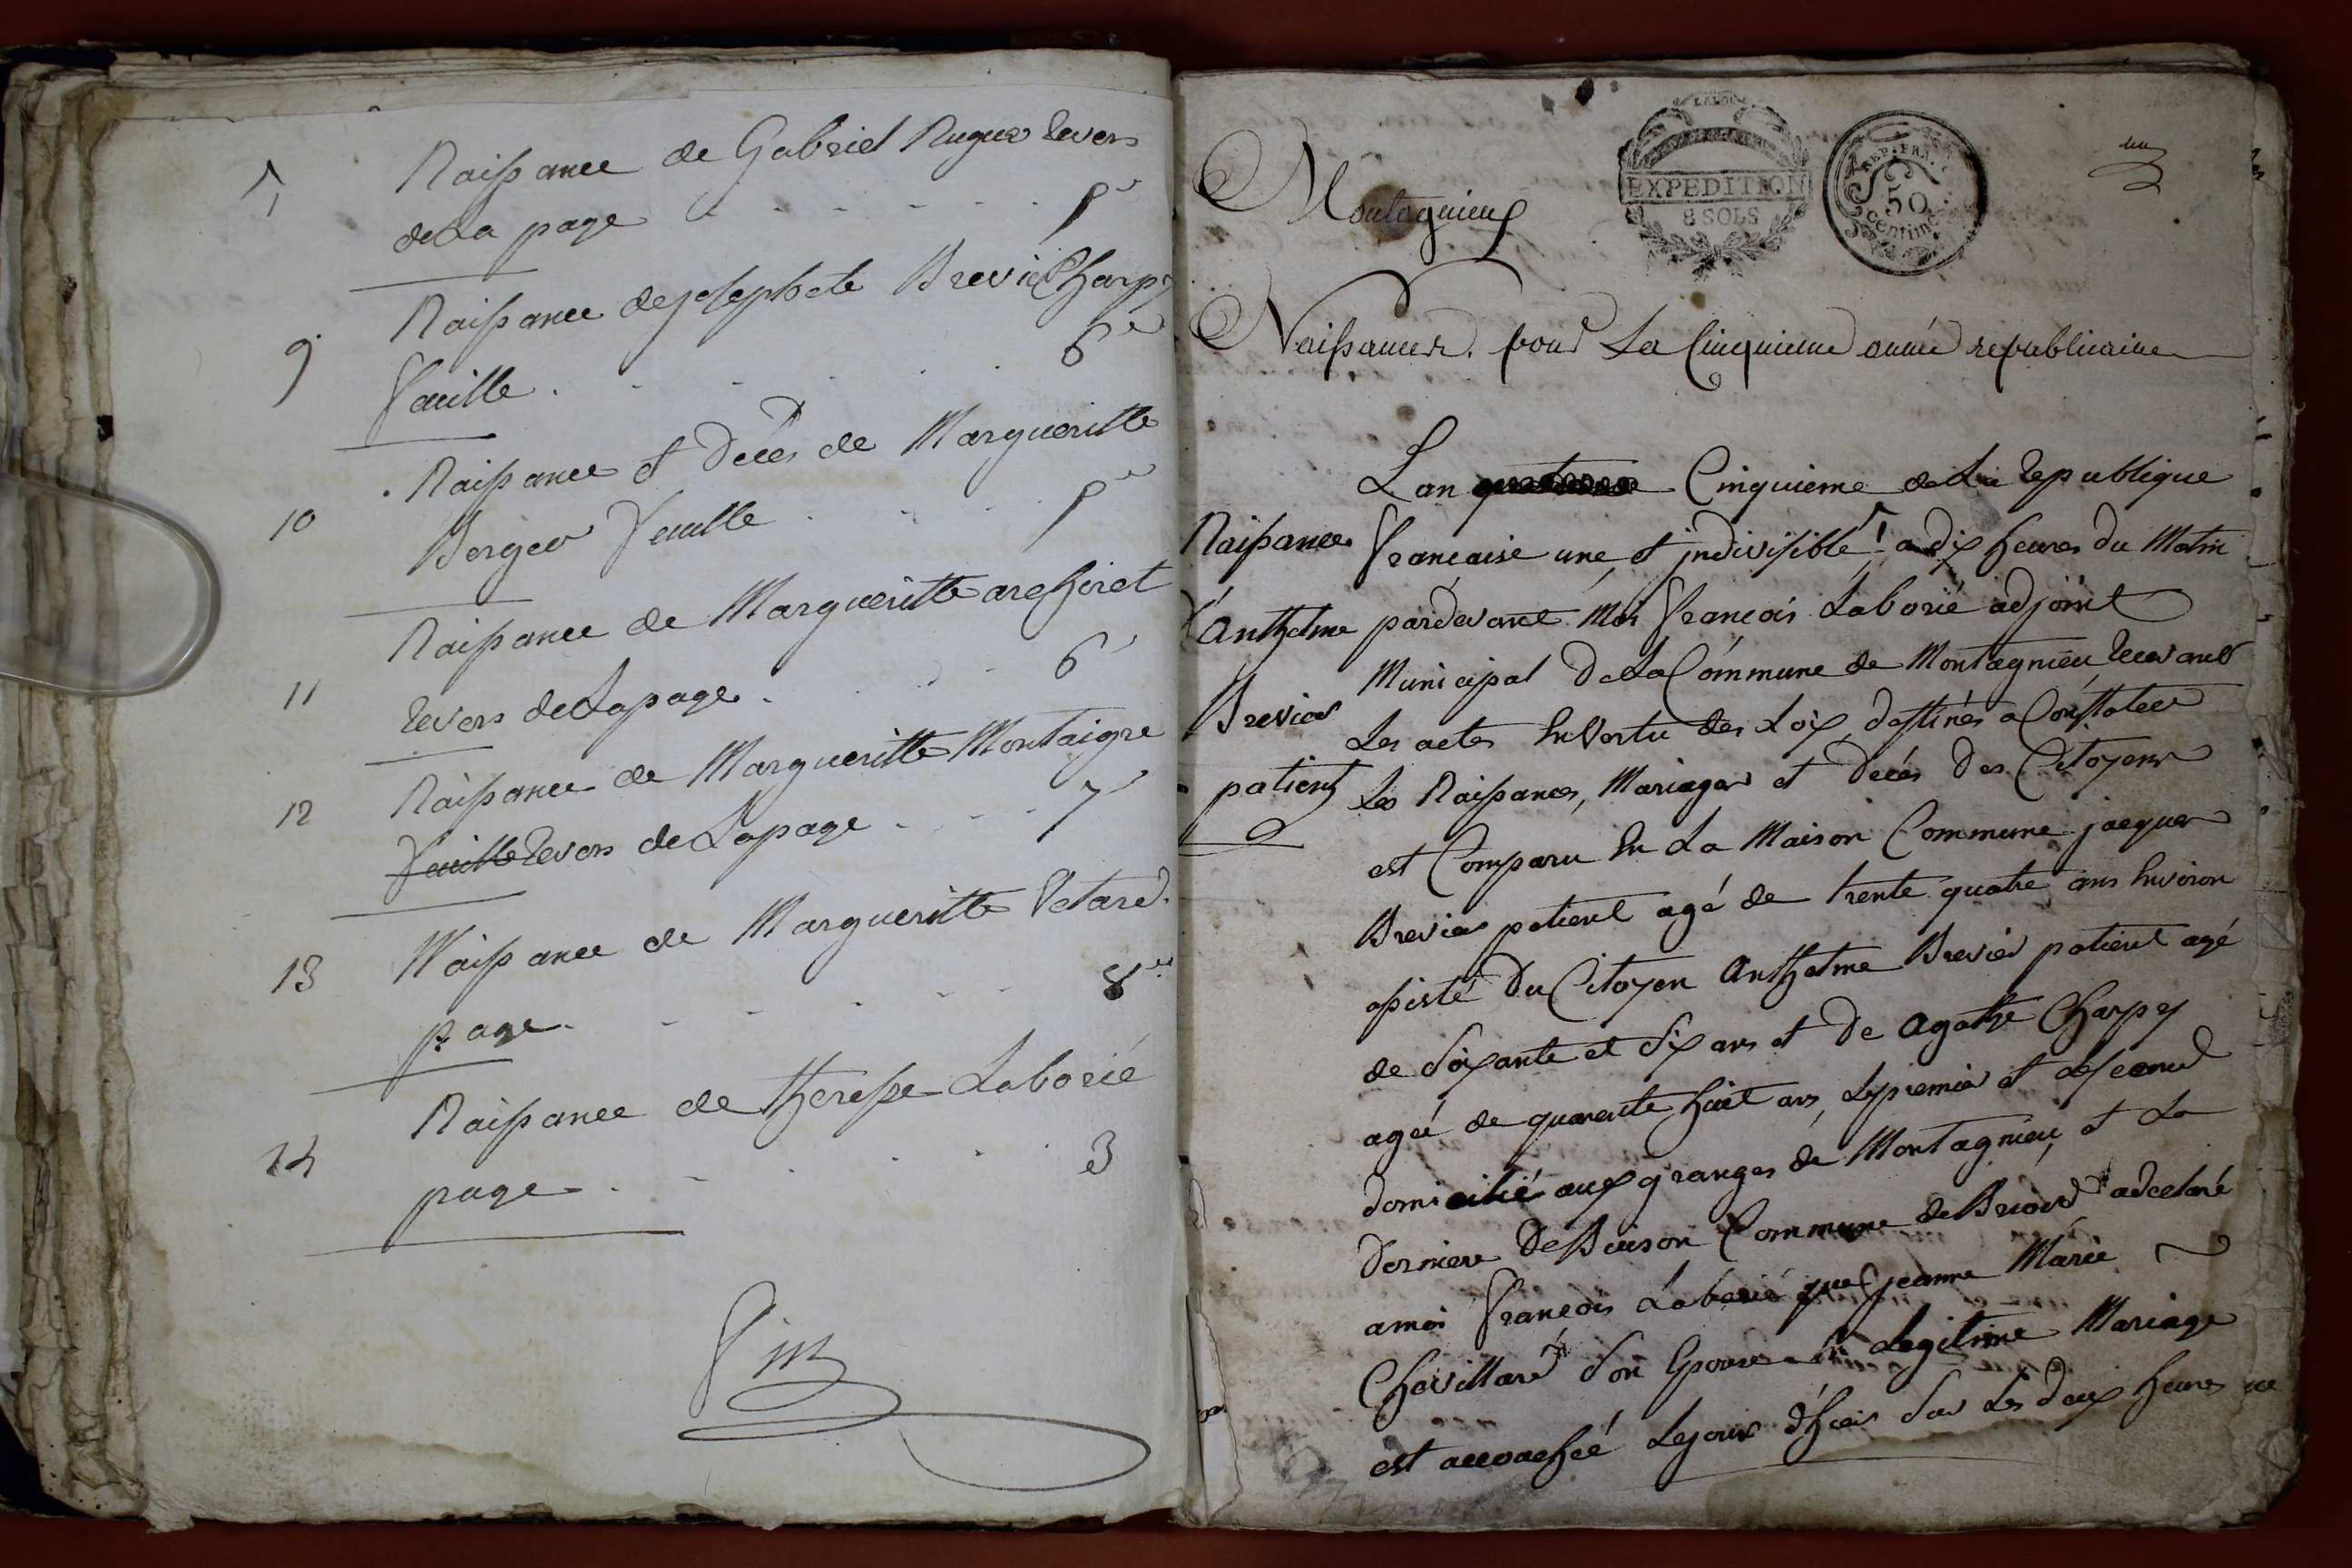 Naissance de Gabriel Rugue Revers
de La page 1er
9 Naissance de josephete Brevie Charpy
feuille 6e
10 Naissance et décès de Margueritte
Berger feuille 1er
11 Naissance de Margueritte archiret
Revers de La page 6
12 Naissance de Margueritte Montaigre
feuille Revers de La page 7
13 Naissance de Margueritte Vetard
page 8e
14 Naissance de theresse Laborié
page 3
fin
Montagnieu
EXPEDITION
8 SOLS
REP. FRA.
50
centimes
un
Naissances pour La Cinquieme année republicaine
Naissance
d'Anthelme
Brevier
patient
L'an Cinquieme de La Republique
francaise une et jndivisible a dix heures du Matin
pardevant Moi françois Laborié adjoint
Municipal de La Commune de Montagnieu Recevant
Les actes En Vertu des Loix destinés a Constater
Les Naissances, Mariages et décès des Citoyens
est Comparu En La Maison Commune jacques
Brevier patient agé de trente quatre ans Environ
assisté du Citoyen Anthelme Brevier patient agé
de Soixante et Six ans et de Agathe Charpy
agée de quarente huit ans, Le premier et Le second
domicilié aux granges de Montagnieu, et La
derniere de Buison Commune de Briord a declaré
a moi françois Laborié que jeanne Marie
Chevillard Son Epouse En Legitime Mariage
est accouchée Le jour d'hier Sur Les deux heures